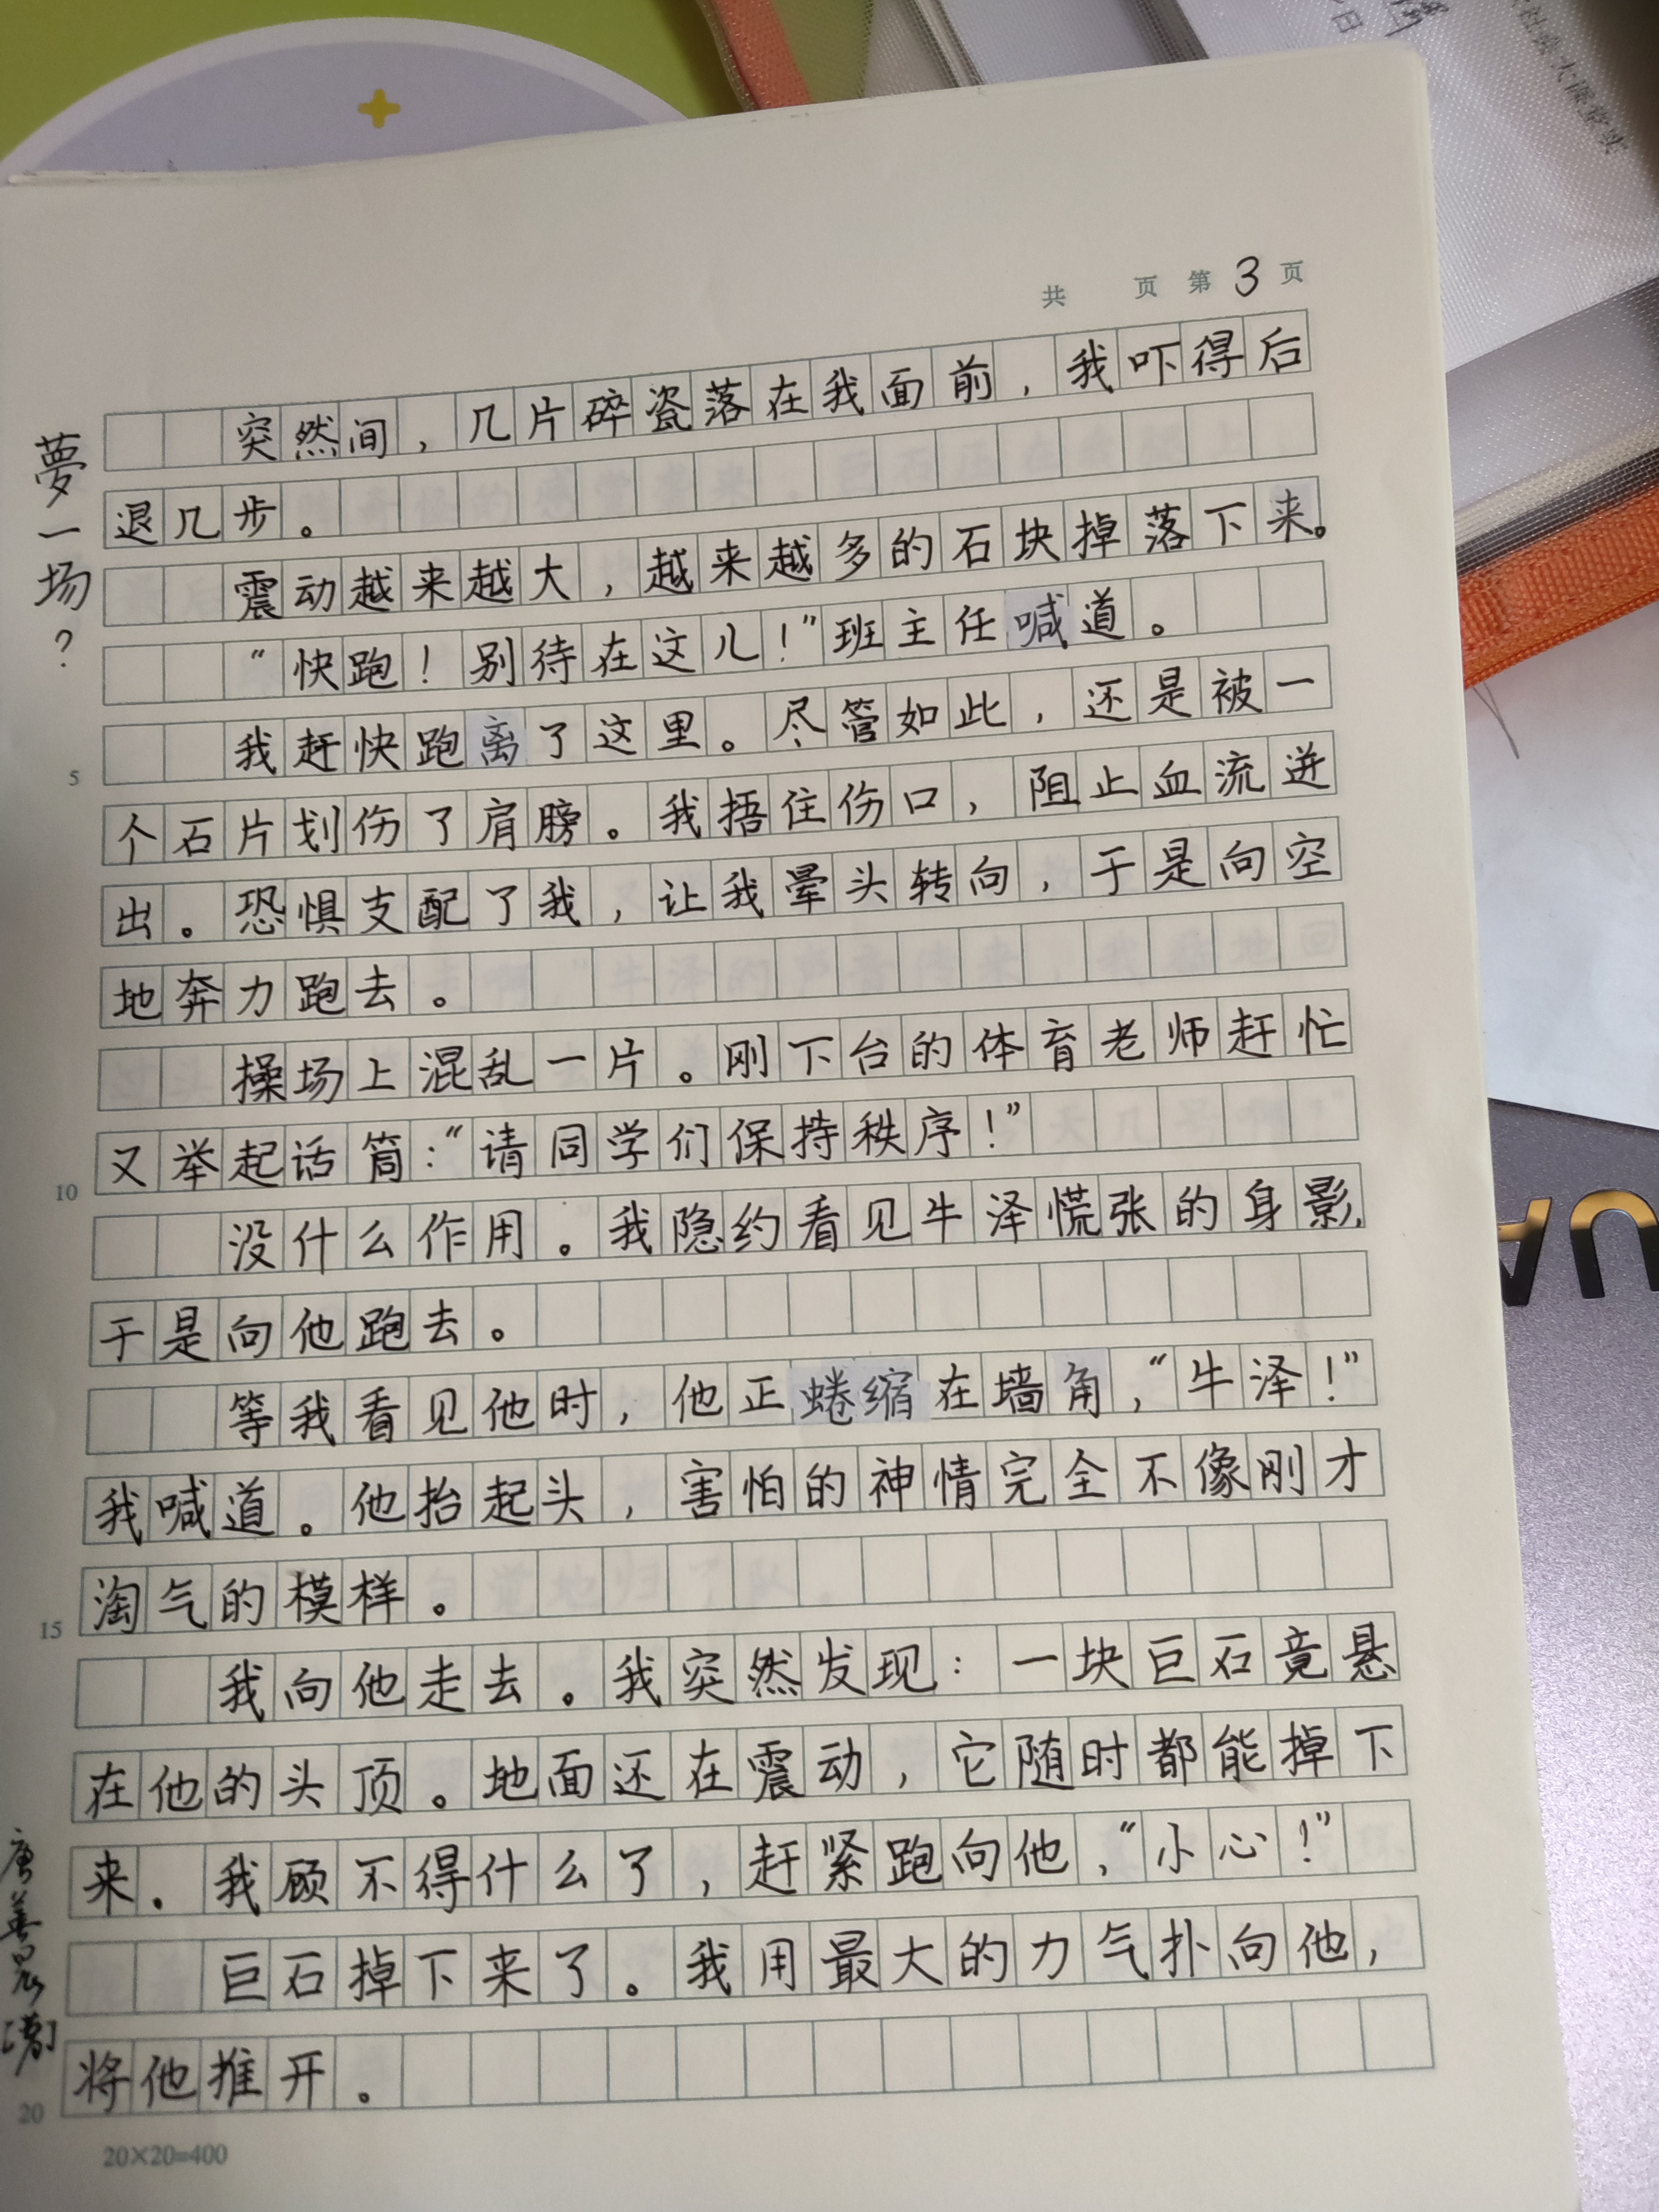 共 页 第 3 页
夢一场？
突然间，几片碎瓷落在我面前，我吓得后
退几步。
震动越来越大，越来越多的石块掉落下来。
“快跑！别待在这儿！”班主任喊道。
我赶快跑离了这里。尽管如此，还是被一
5
个石片划伤了肩膀。我捂住伤口，阻止血流迸
出。恐惧支配了我，让我晕头转向，于是向空
地奔力跑去。
操场上混乱一片。刚下台的体育老师赶忙
又举起话筒：“请同学们保持秩序！”
10
没什么作用。我隐约看见牛泽慌张的身影，
于是向他跑去。
等我看见他时，他正蜷缩在墙角，“牛泽！”
我喊道。他抬起头，害怕的神情完全不像刚才
淘气的模样。
15
我向他走去。我突然发现：一块巨石竟悬
在他的头顶。地面还在震动，它随时都能掉下
来。我顾不得什么了，赶紧跑向他，“小心！”
巨石掉下来了。我用最大的力气扑向他，
将他推开。
20
20×20=400